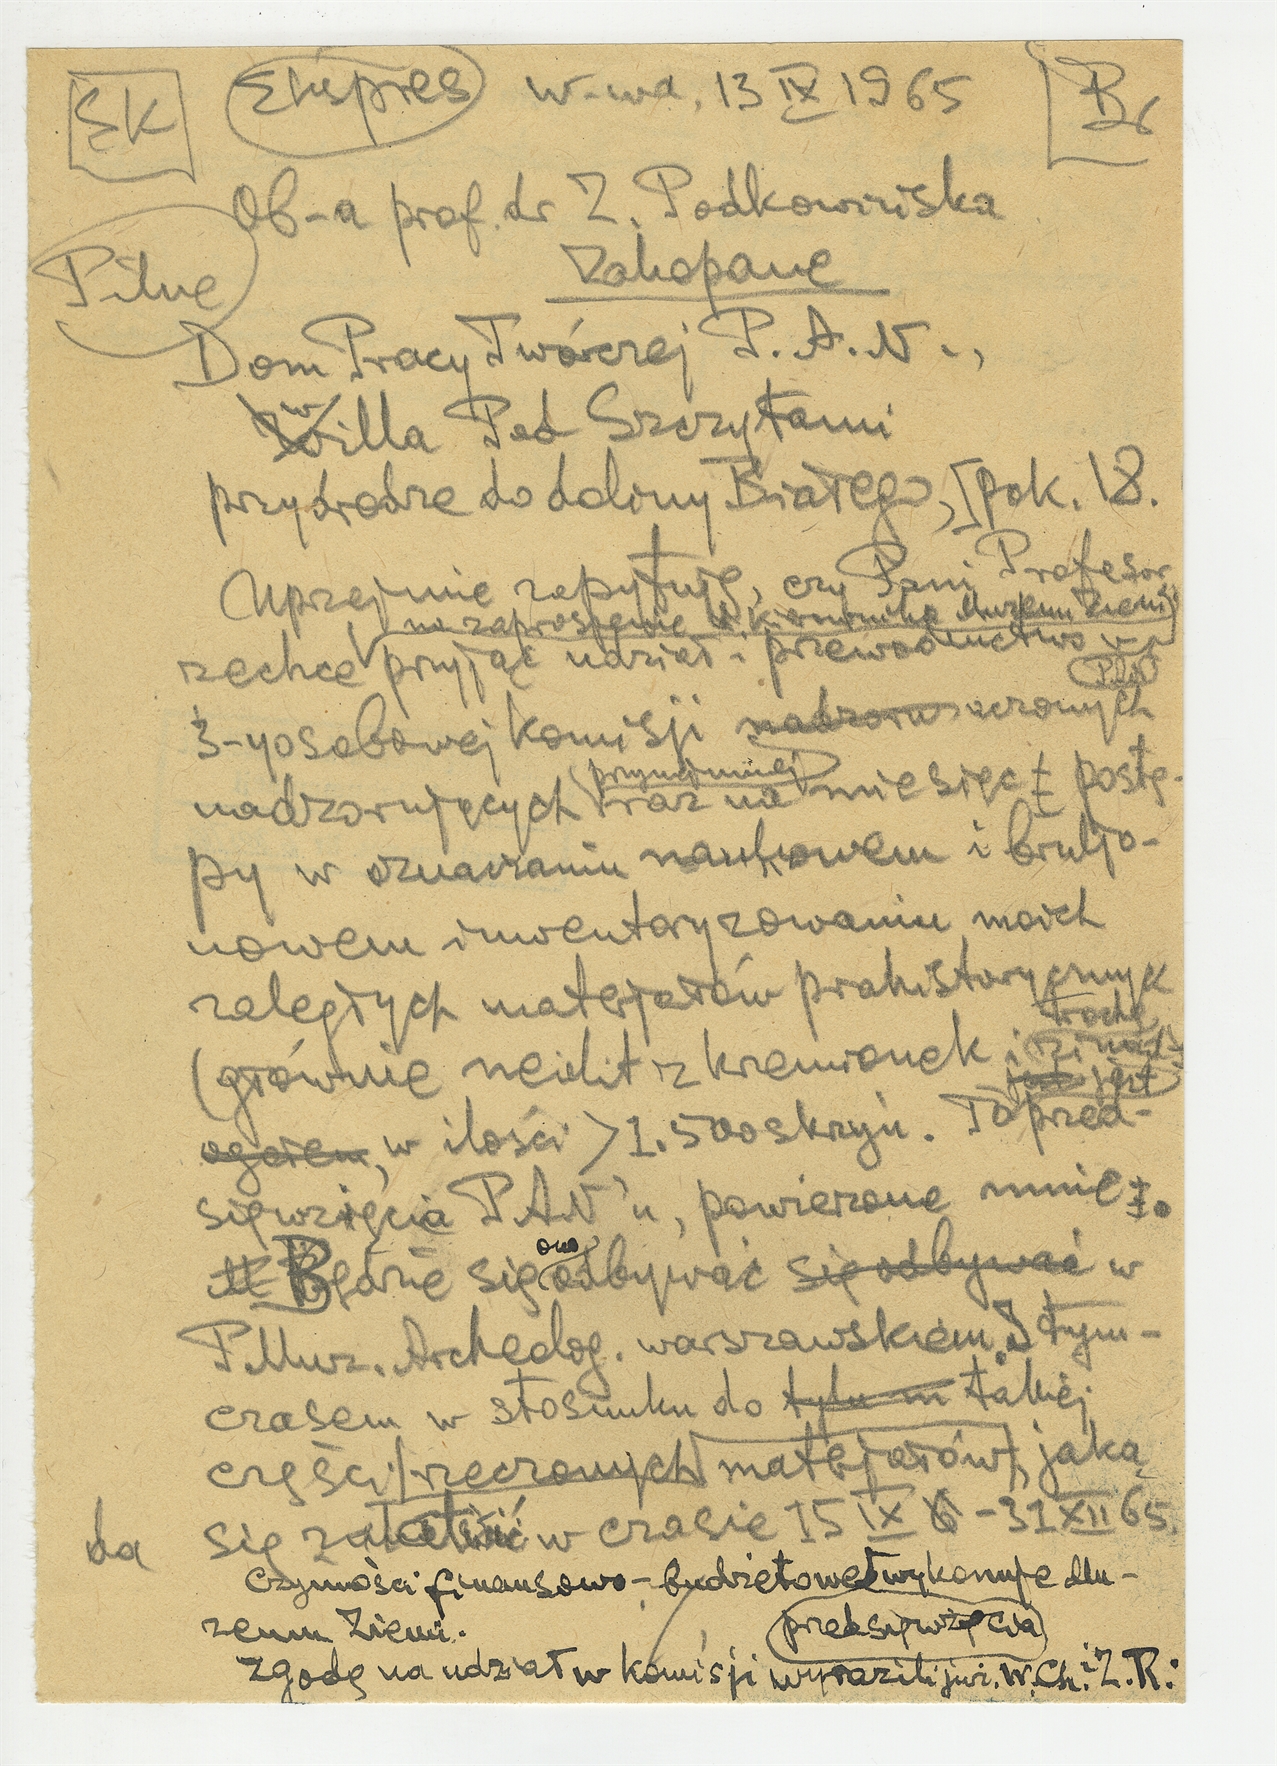 SK Ekspres W-wa, 13 IX 1965 Br
Ob-a prof. dr Z. Podkowińska
Pilne
Zakopane
Dom Pracy Twórczej P.A.N.,
willa Pod Szczytami
przy drodze do doliny Białego, pok. 18.
Uprzejmie zapytuję, czy Pani Profesor
na zaproszenie kierownika Muzeum Ziemi
zechce przyjąć udział i przewodnictwo w
PAN
3-yosobowej komisji nadzoru uczonych
przynajmniej
nadzorujących raz na miesiąc postę-
py w oznaczaniu naukowem i bruljo-
nowem inwentaryzowaniu moich
zaległych materjałów prahistorycznych
trochę
(głównie neolit z krzemionek i
ogółem, w ilości > 1.500 skrzyń. To przed-
sięwzięcia PAN'u, powierzone mnie.
ono
Będzie się odbywać się odbywać w
P.Muz. Archeolog. warszawskiem. I tym-
czasem w stosunku do takiej
części rzeczonych materjałów, jaką
da się załatwić w czasie 15 IX - 31 XII 65.
Czynności finansowo-budżetowe wykonuje Mu-
zeum Ziemi.
przedsięwzięcia
Zgodę na udział w komisji wyrazili już W.Ch. i Z.R.: